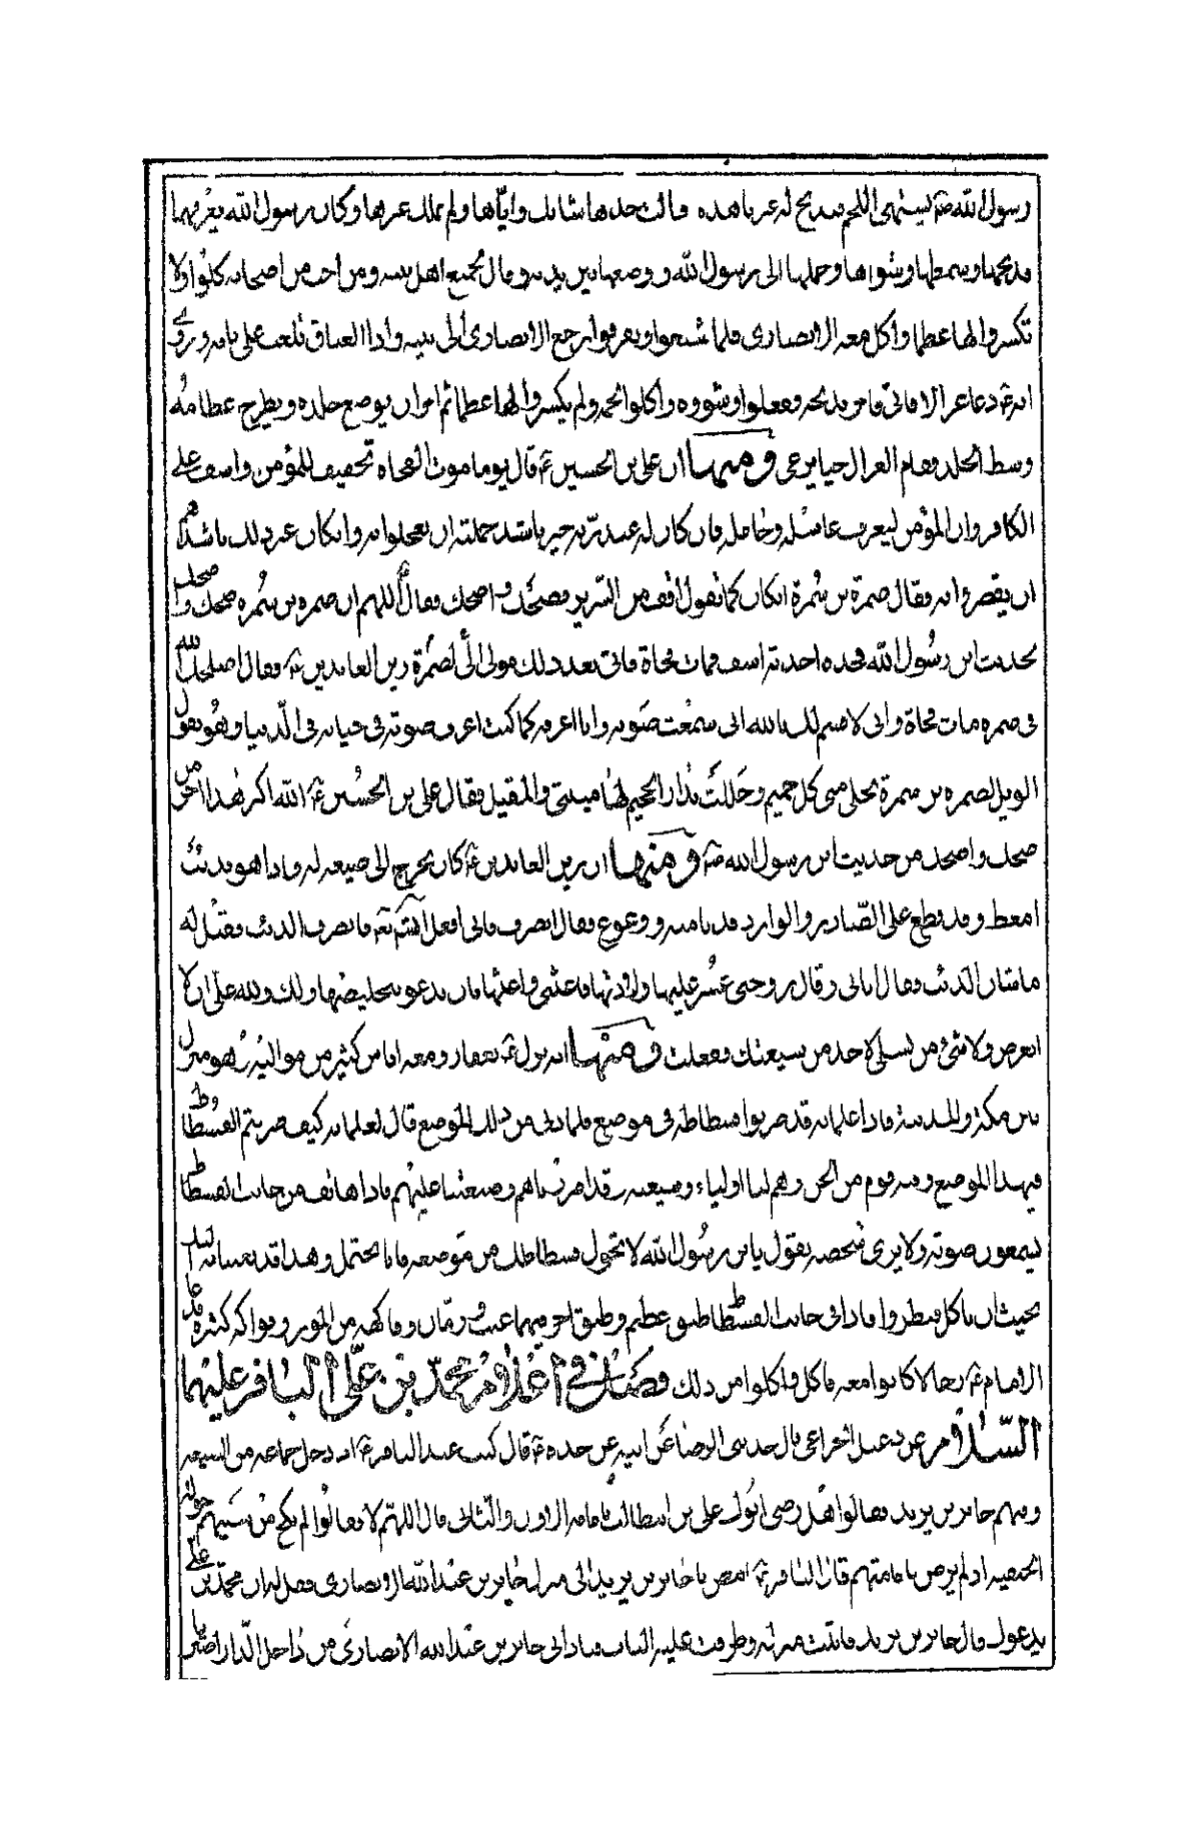 رسول الله صه يشتهى اللحم فنذبح له عناقنا هذه قالت خذها شانك واياها ولم نملك غيرها وكان رسول الله يعرفهما
فذبحها وسمطها وشواها وحملها الى رسول الله ووضعها بين يديه وقال فجمع اهل بيته ومن احب من اصحابه كلوا ولا
تكسروا لها عظما واكل معه الانصارى فلما شبعوا وتفرقوا رجع الانصارى الى بيته واذا العناق تلعب على بابه وروى
انه ع دعا غزالا فاتى فامر بذبحه ففعلوا وشووه واكلوا لحمه ولم يكسروا لها عظما ثم امر ان يوضع جلده ويطرح عظامه
وسط الجلد فقام الغزال حيا يرعى ومنها ان على بن الحسين ع قال يوما موت الفجاه تخفيف للمؤمن واسف على
الكافر وان المؤمن ليعرف غاسله وحامله فان كان له عند ربه خير ناشد حملته ان يعجلوا به وان كان غير ذلك ناشدهم
ان يقصروا به فقال ضمرة بن سمرة ان كان كما تقول اقفز من السرير فضحك واضحك فقال ع اللهم ان ضمره بن سمره ضحك واضحك
لحديث ابن رسول الله فخذه اخذة اسف فمات فجاة فاتى بعد ذلك مولى لضمرة زين العابدين ع فقال اصلحك الله
ان ضمره مات فجاة وانى لاقسم لك بالله انى سمعت صوته وانا اعرفه كما كنت اعرف صوته فى حياته فى الدنيا وهو يقول
الويل لضمره بن سمرة تخلى منى كل حميم وحللت بدار الجحيم لها مبيتى والمقيل فقال على بن الحسين ع الله اكبر هذا اجر من
ضحك واضحك من حديث ابن رسول الله صه ومنها ان زين العابدين ع كان يخرج الى ضيعه له فاذا هو بذئب
امعط وقد قطع على الصادر والوارد فدنا منه ووعوع فقال انصرف فانى افعل انشاء الله تع فانصرف الذئب فقيل له
ما شان الذئب فقال اتانى وقال زوجتى عسر عليها ولادتها فاغثنى واغثها بان تدعو بتخليصها ولك لله على ان لا
اتعرض ولا شئ من نسلى لاحد من شيعتك ففعلت ومنها انه نزل ع بعسفان ومعه اناس كثير من مواليه وهو منزل
بين مكة والمدينة فاذا غلمانه قد ضربوا فسطاطه فى موضع فلما دنى من ذلك الموضع قال لغلمانه كيف ضربتم الفسطاط
فى هذا الموضع وفيه قوم من الجن وهم لنا اولياء وشيعة وقد اضررنا بهم وضيقنا عليهم فاذا هاتف من جانب الفسطاط
يسمعون صوته ولا يرى شخصه يقول يابن رسول الله لا تحول فسطاطك من موضعه فانا نحتمل وهذا قد بعثنا به اليك
نحب ان تاكل فنظروا فاذا فى جانب الفسطاط طبق عظيم وطبق اخر فيهما عنب ورمان وفاكهه من الموز وفواكه كثيرة فدعا
الامام ع رجالا كانوا معه فاكل واكلوا من ذلك فصل فى اعلام محمد بن على الباقر عليهما
السلام عن دعبل الخزاعى قال حدثنى الرضا عن ابيه عن جده ع قال كنت عند الباقر ع اذ دخل جماعه من الشيعه
وفيهم جابر بن يزيد فقالوا هل رضى ابوك على بن ابيطالب بامامه الاول والثانى قال اللهم لا فقالوا لم نكح من سبيهم خولة
الحنفيه اذ لم يرض بامامتهم قال الباقر ع امض يا جابر بن يزيد الى منزل جابر بن عبد الله الانصارى فقل له ان محمد بن على
يدعوك قال جابر بن يزيد فاتيت منزله وطرقت عليه الباب فنادانى جابر بن عبد الله الانصارى من داخل الدار اصبر يا